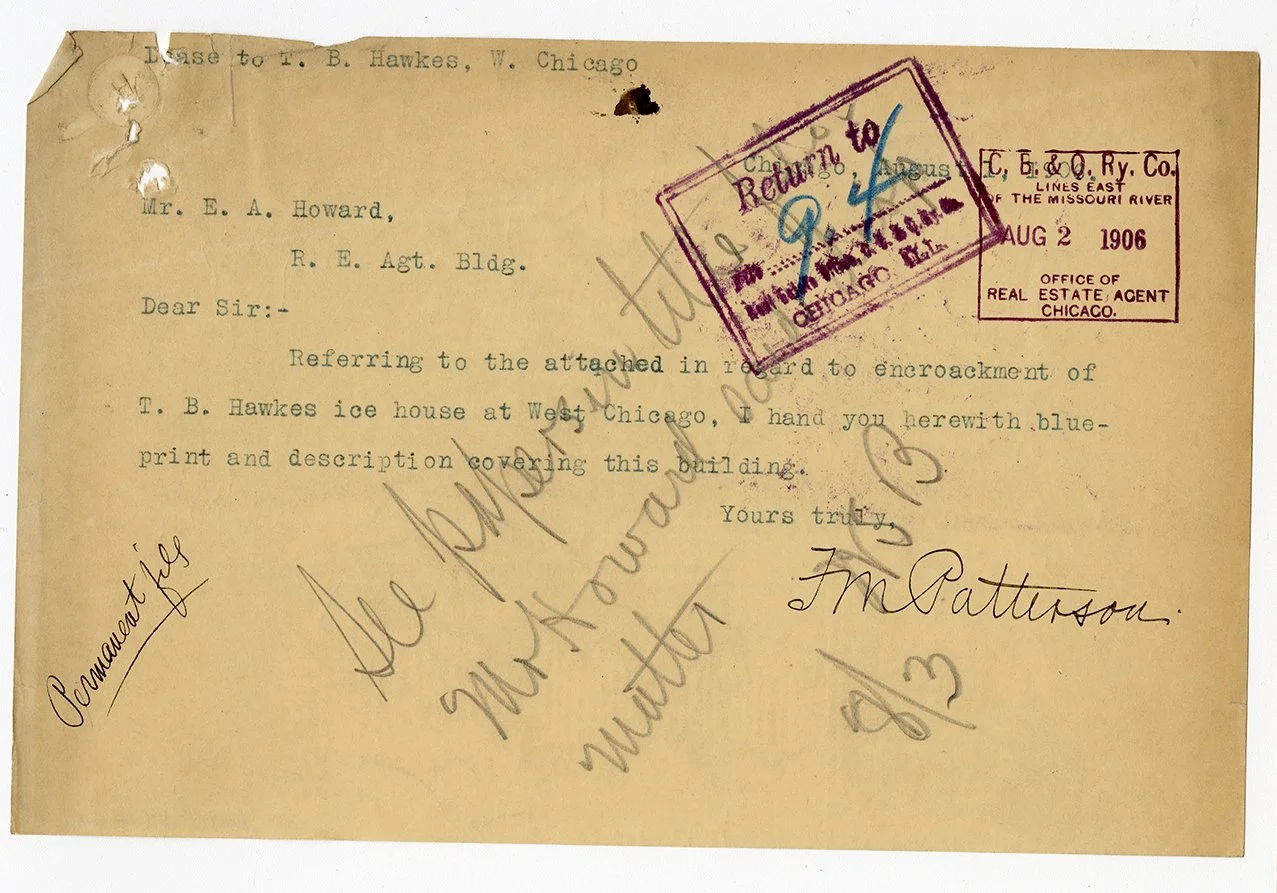 to T. B. Hawkes, W. Chicago
Chicago, August 1, 1906.
Return to
94
CHICAGO, ILL.
C, B. & Q. Ry. Co.
LINES EAST
OF THE MISSOURI RIVER
AUG 2 1906
OFFICE OF
REAL ESTATE AGENT
CHICAGO.
Mr. E. A. Howard,
R. E. Agt. Bldg.
Dear Sir:-
Referring to the attached in regard to encroackment of
T. B. Hawkes ice house at West Chicago, I hand you herewith blue-
print and description covering this building.
Yours truly,
FM Patterson.
Permanent file
See papers in
Mr Howard
matter
8/3